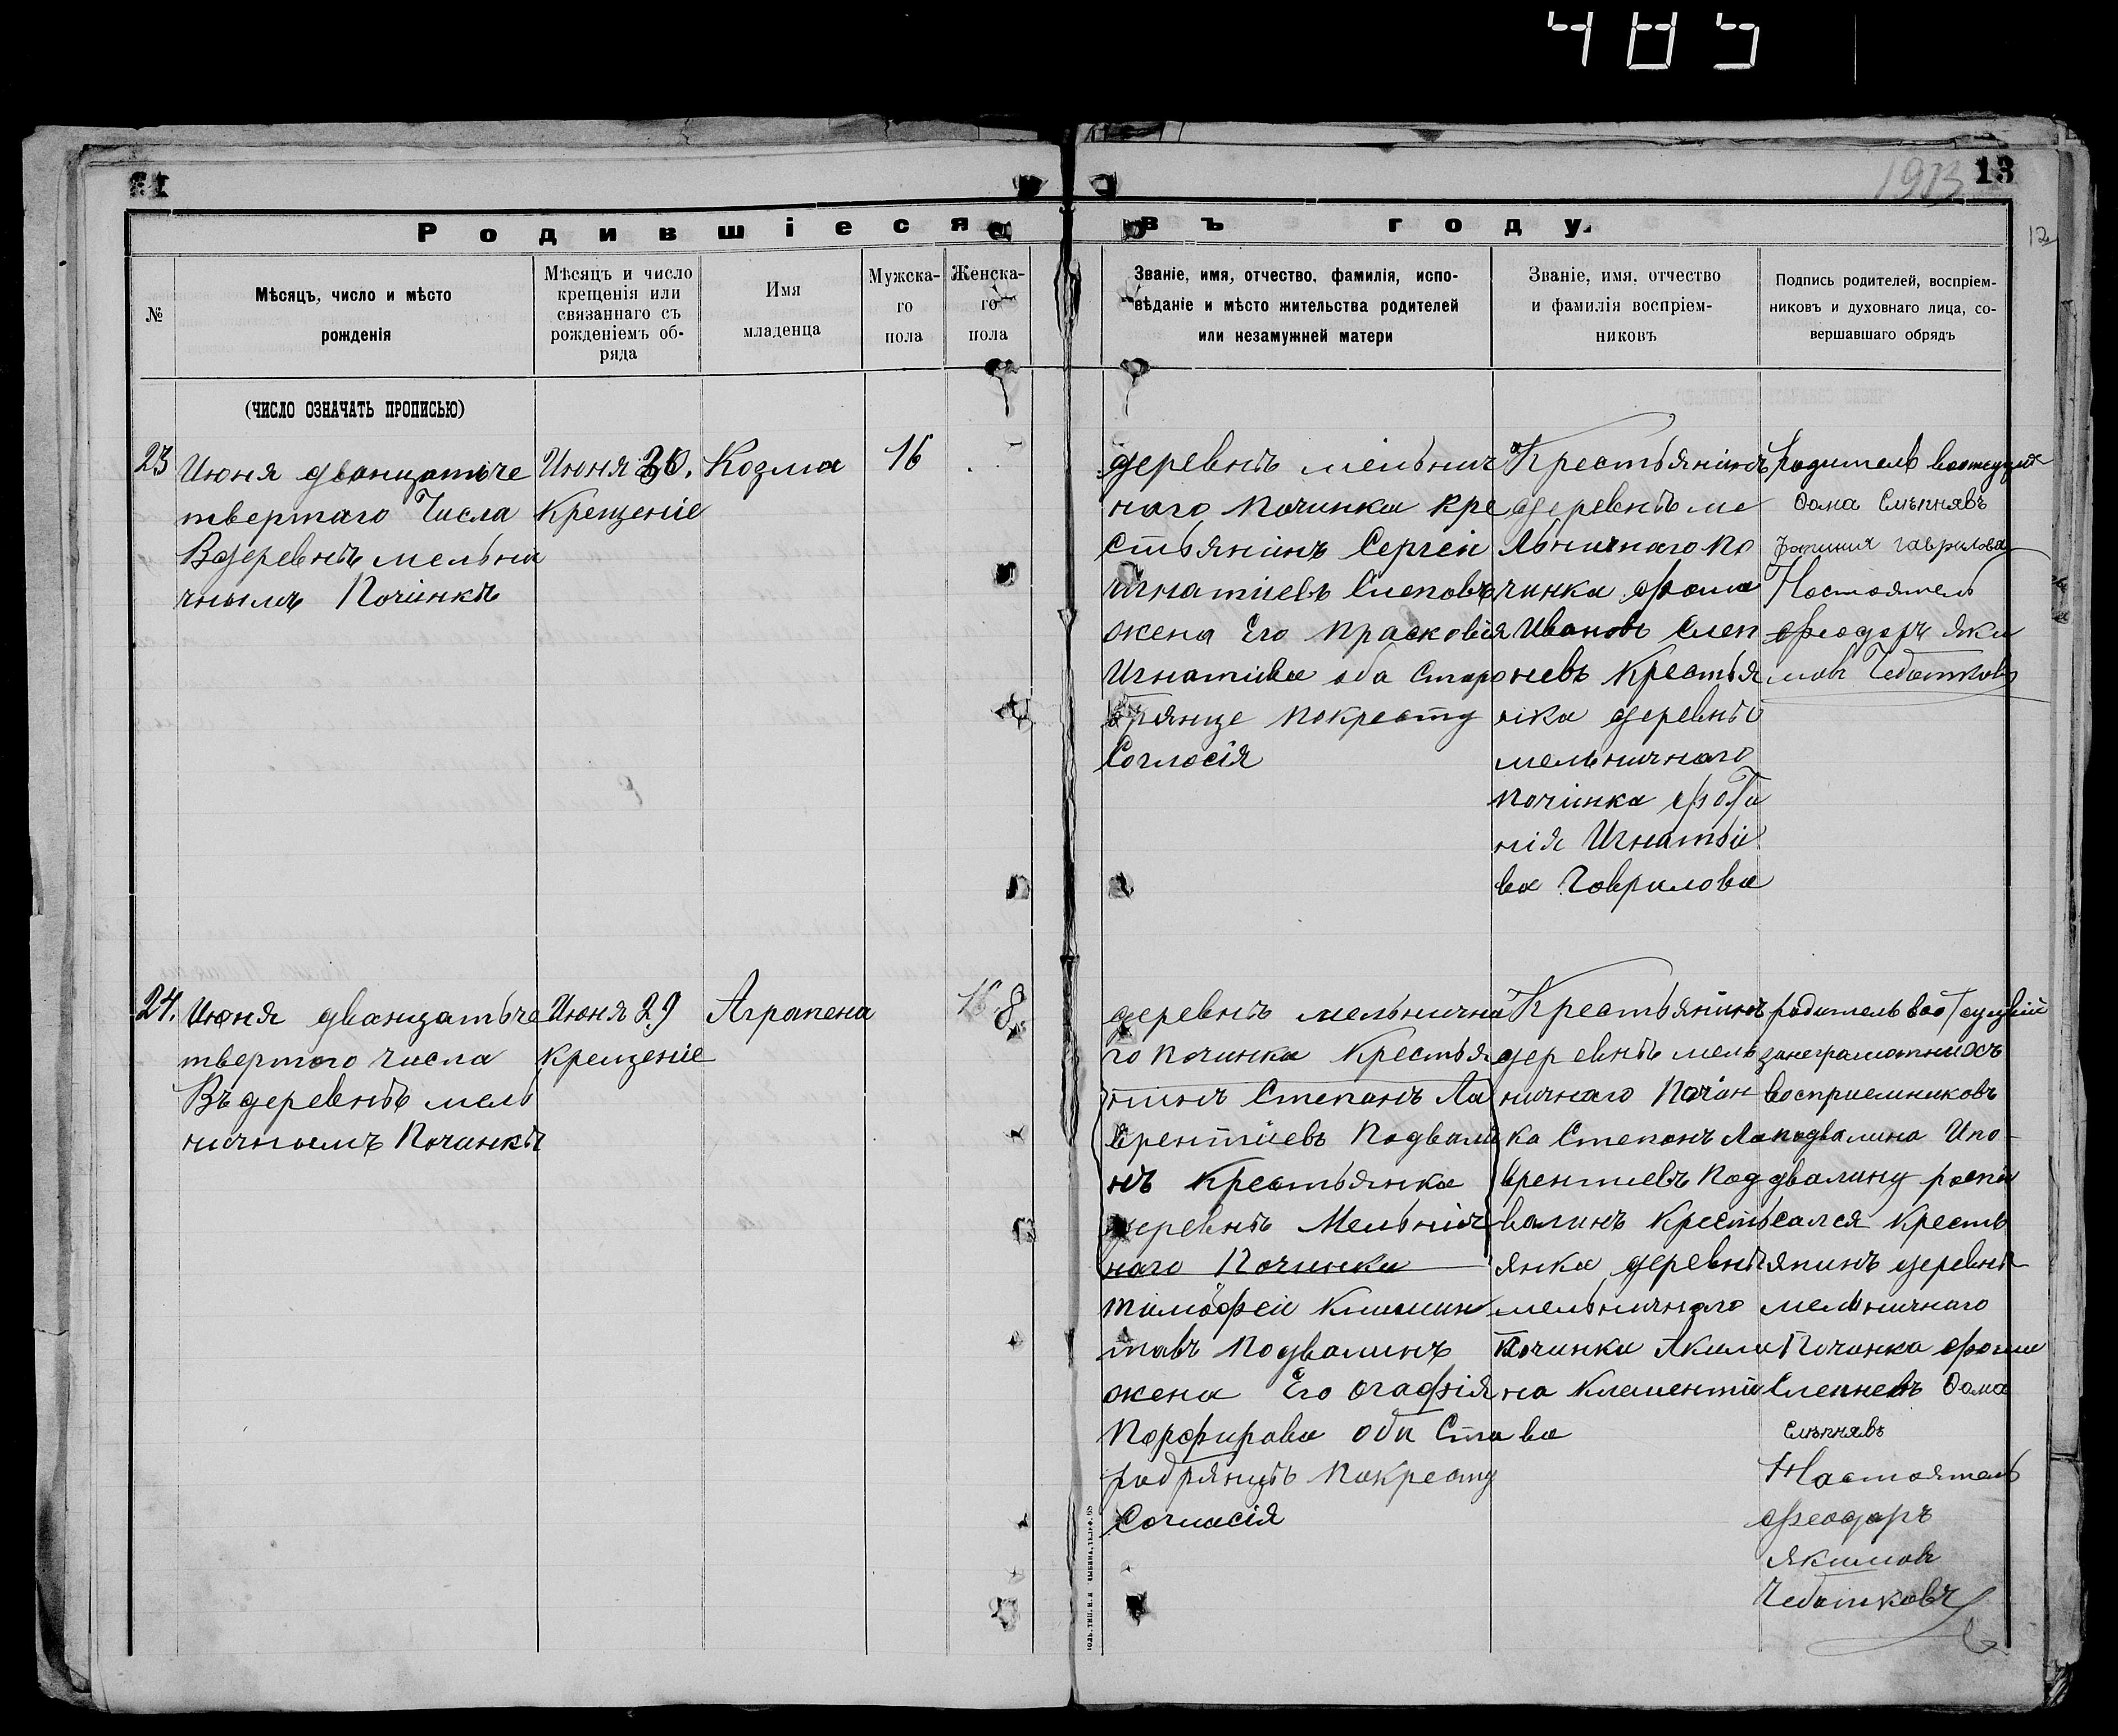 485
13
1913
12
Родившіеся въ году.
№
Мѣсяцъ, число и мѣсто
рожденія
Мѣсяцъ и число
крещенія или
связаннаго съ
рожденіемъ об-
ряда
Имя
младенца
Мужска-
го
пола
Женска-
го
пола
Званіе, имя, отчество, фамилія, испо-
вѣданіе и мѣсто жительства родителей
или незамужней матери
Званіе, имя, отчество
и фамилія воспріем-
никовъ
Подпись родителей, воспріем-
никовъ и духовнаго лица, со-
вершавшаго обрядъ
(ЧИСЛО ОЗНАЧАТЬ ПРОПИСЬЮ)
23
Июня дванцатьче
твертаго Числа
Вдеревнѣ мельни
чнымъ Починкѣ
Июня 30.
Крещеніе
Козма
16
деревнѣ мельнич
наго починка кре
стьянинъ Сергеи
Игнатиевъ Слеповъ
жена Его Прасковія
Игнатива оба Старо
брянце покресту
Согласія
Крестьянинъ
деревнѣ ме
льничнаго по
чинка фома
Ивановъ Слеп
невъ Крестья
нка деревнѣ
мельничнаго
починка фоти
нія Игнатьи
ва Гаврилова
родитель
Ѳома Слѣпнявъ
фотиния гаврилова
Настоятель
феодоръ яки
мовъ Чебатковъ
24.
Июня дванцатьче
твертого числа
Въ деревнѣ мель
ничнымъ Починкѣ
Июня 29
крещеніе
Аграпена
8
деревнѣ мельнична
го починка Крестья
нинъ Степанъ Ла
врентиевъ Подвали
нъ Крестьянка
деревнѣ Мельнич
наго Починка
тимофеи Климин
тавъ Подвалинъ
жена Его огафія
Порфирова оби Ста
робрянцѣ покресту
Согласія
Крестьянинъ
деревнѣ мель
ничнаго Почін
ка Степанъ Ла
врентиевъ Под
валинъ Кресть
янка деревнѣ
мельничнаго
Починка Акили
на Клементи
ва
родитель
занеграмотность
восприемниковъ
подвалина Ипо-
двалину роспи
сался кресть
янинъ деревнѣ
мельничнаго
Починка фома
Слепневъ Ѳома
Слѣпнявъ
Настоятель
феодоръ
якимовъ
Чебатковъ